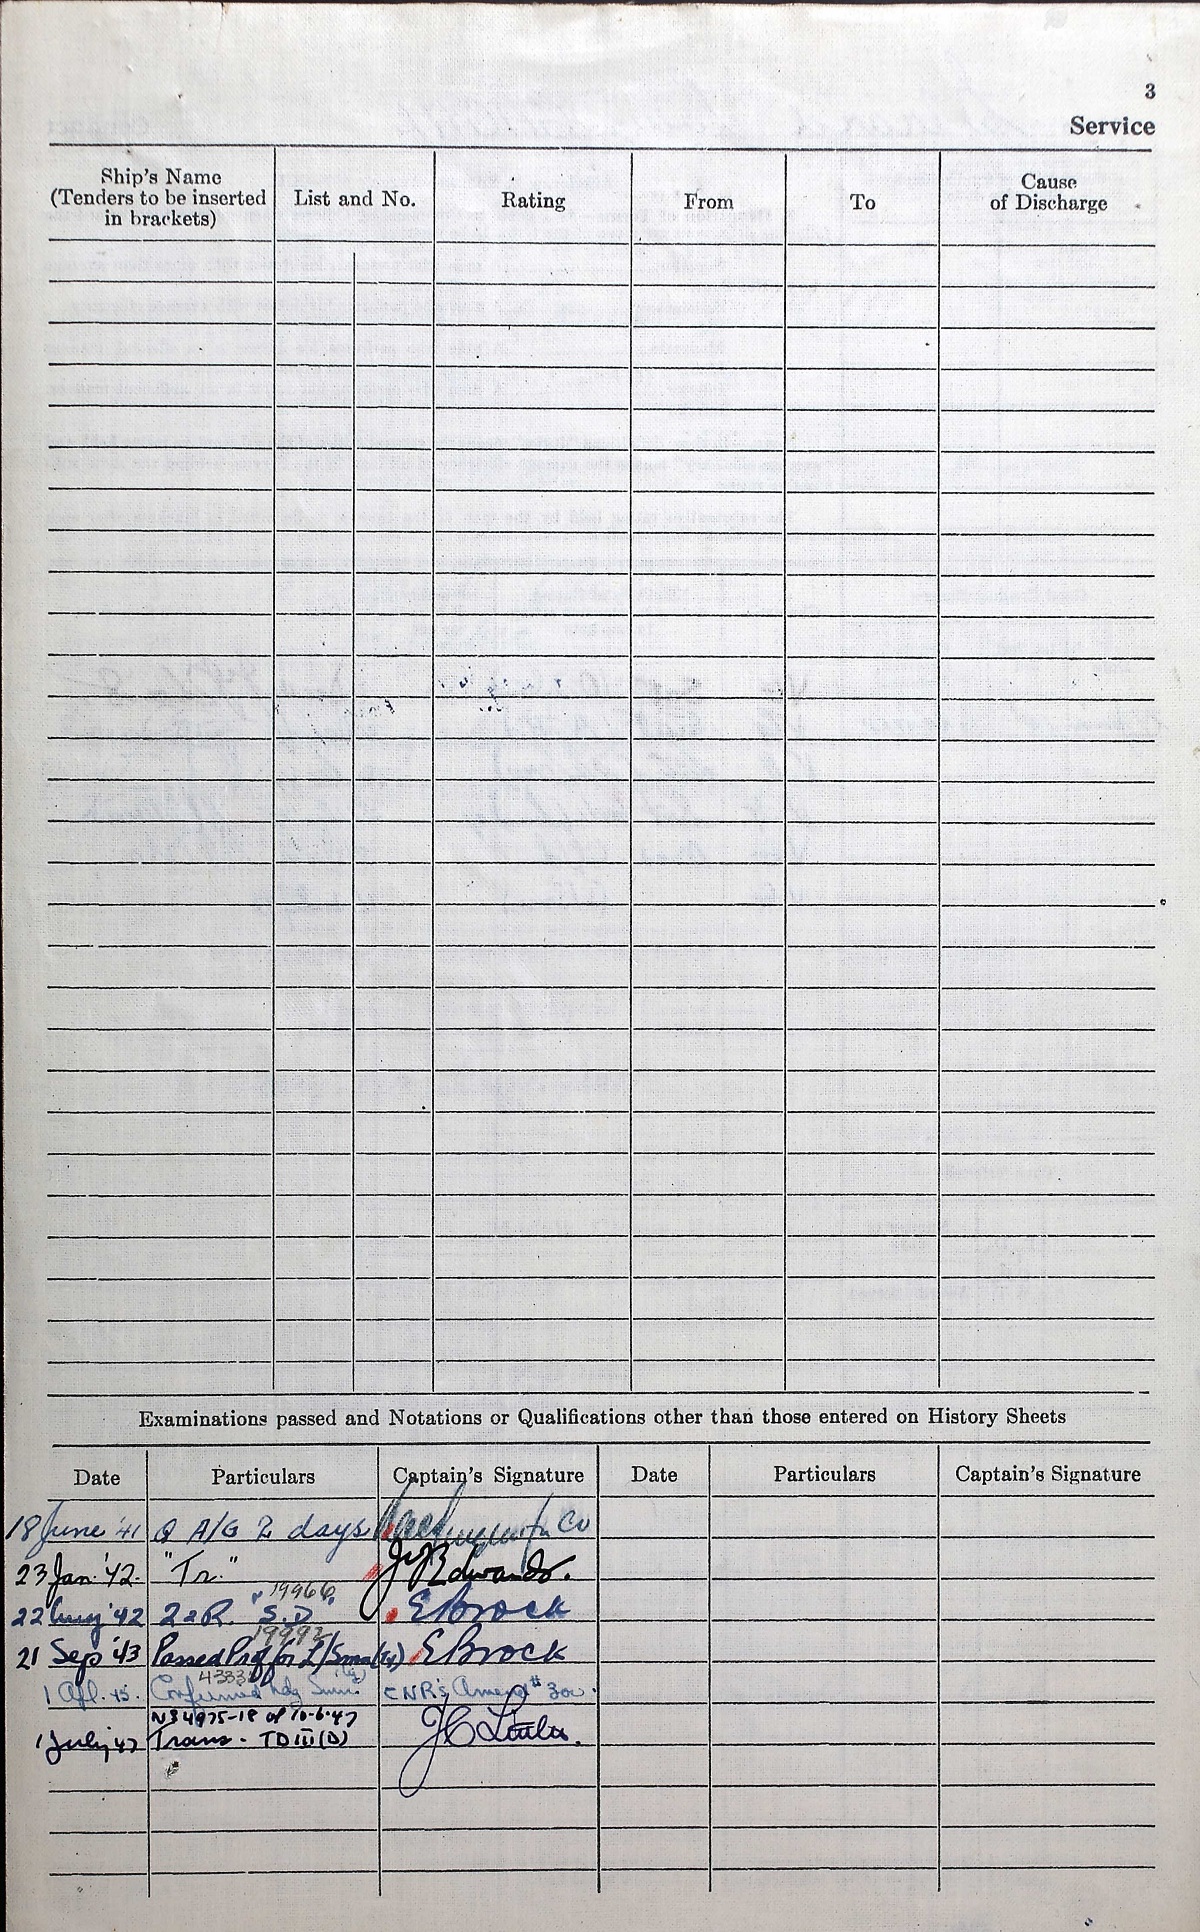 3
Service
Ship's Name
(Tenders to be inserted
in brackets)
List and No.
Rating
From
To
Cause
of Discharge
Examinations passed and Notations or Qualifications other than those entered on History Sheets
Date
Particulars
Captain's Signature
Date
Particulars
Captain's Signature
18 June '41 Q A/G 2 days
23 Jan. '42. "Tr." Edwards.
19966
22 Aug '42 2aR. "S.D" EBrock
19992
21 Sep '43 Passed Prof for L/Smn EBrock
4333
1 Apl. 45. Confirmed Ldg Smn. CNR's Amend # 30
NS 4975-18 of 10-6-47
1 July '47 Trans - TD III (D)